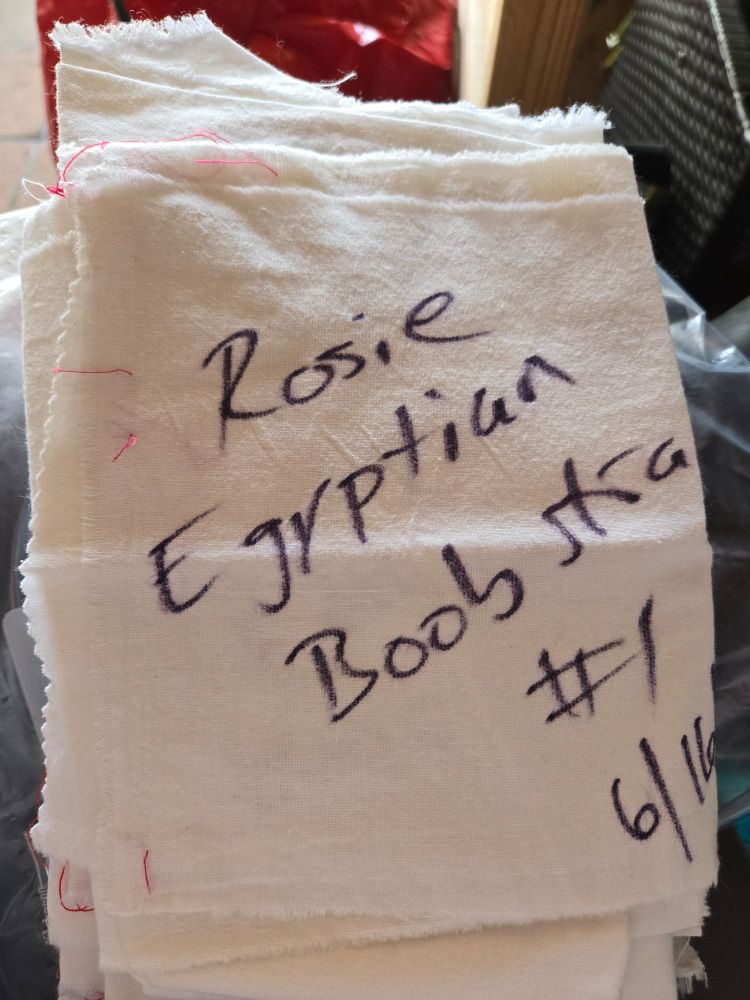 Rosie
Egrptian
Boobstra
#1
6/16